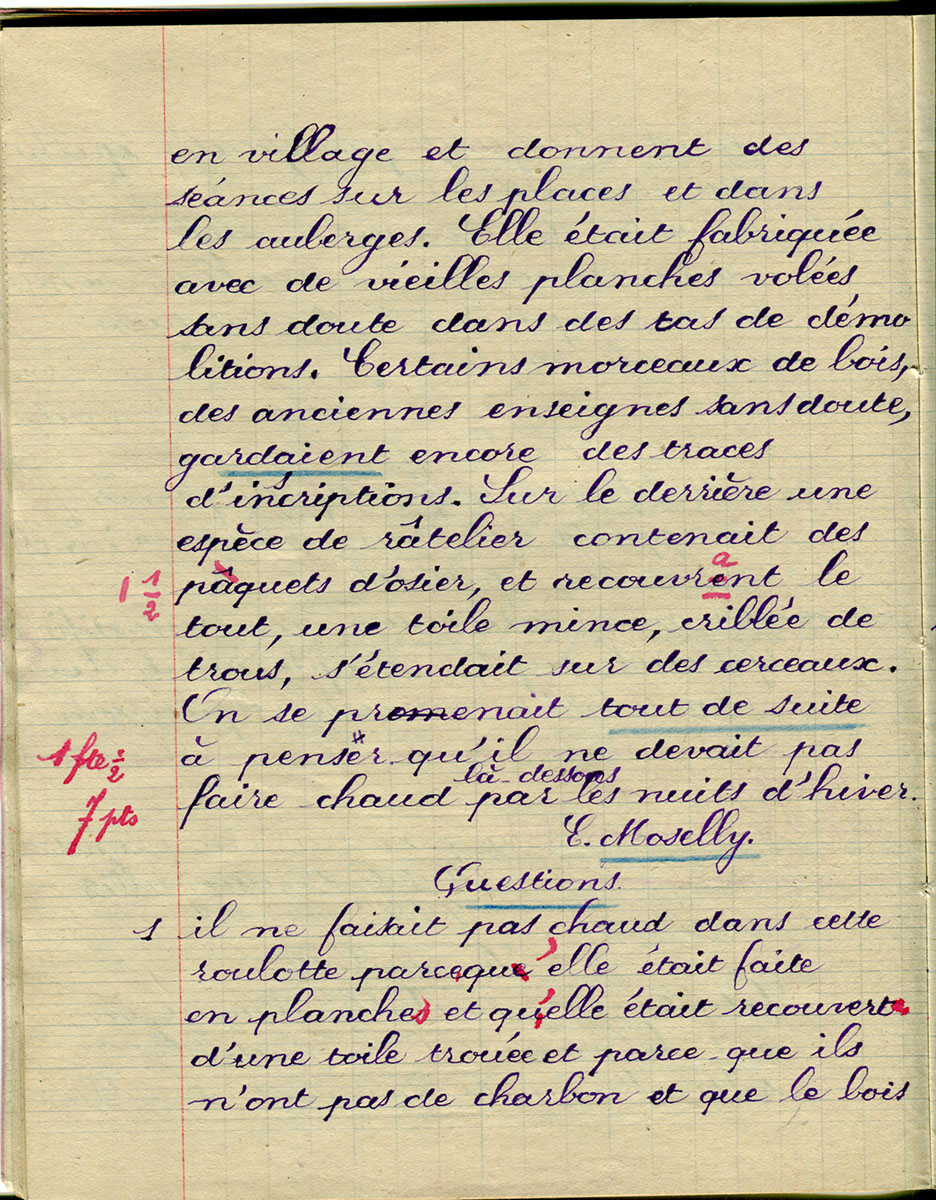 en village et donnent des
séances sur les places et dans
les auberges. Elle était fabriquée
avec de vieilles planches volées
sans doute dans des tas de démo
litions. Certains morceaux de bois,
des anciennes enseignes sans doute,
gardaient encore des traces
d'inscriptions. Sur le derrière une
espèce de râtelier contenait des
pâquets d'osier, et recouvrent le
a
1 1/2
tout, une toile mince, criblée de
trous, s'étendait sur des cerceaux.
On se promenait tout de suite
à penser qu'il ne devait pas
1 fte 1/2
là-dessous
faire chaud par les nuits d'hiver.
7 pts
E. Moselly.
Questions.
1 il ne faisait pas chaud dans cette
roulotte parceque elle était faite
en planches et qu'elle était recouverte
d'une toile trouée et parce-que ils
n'ont pas de charbon et que le bois